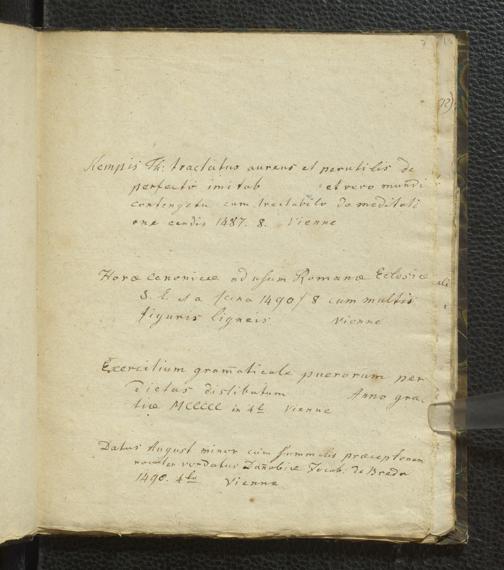 Kempis Th: tractatus aureus et perutilis de
perfecta imitab et vero mundi
contemptu cum tractabilo de meditati
one cordis 1487. 8. Vienne
Horæ Canonicæ ad usum Romanæ Eclesiæ
S. L. et a 1490/ 8 cum multis
figuris ligneis Vienne
Exercitium gramaticale puerorum per
Dietas distibutum Anno gra
tiæ MCCCCC in 4t Vienne
Datus August minor cum præceptorum
noviter Jacob. de Breda
1490. 4to Vienne